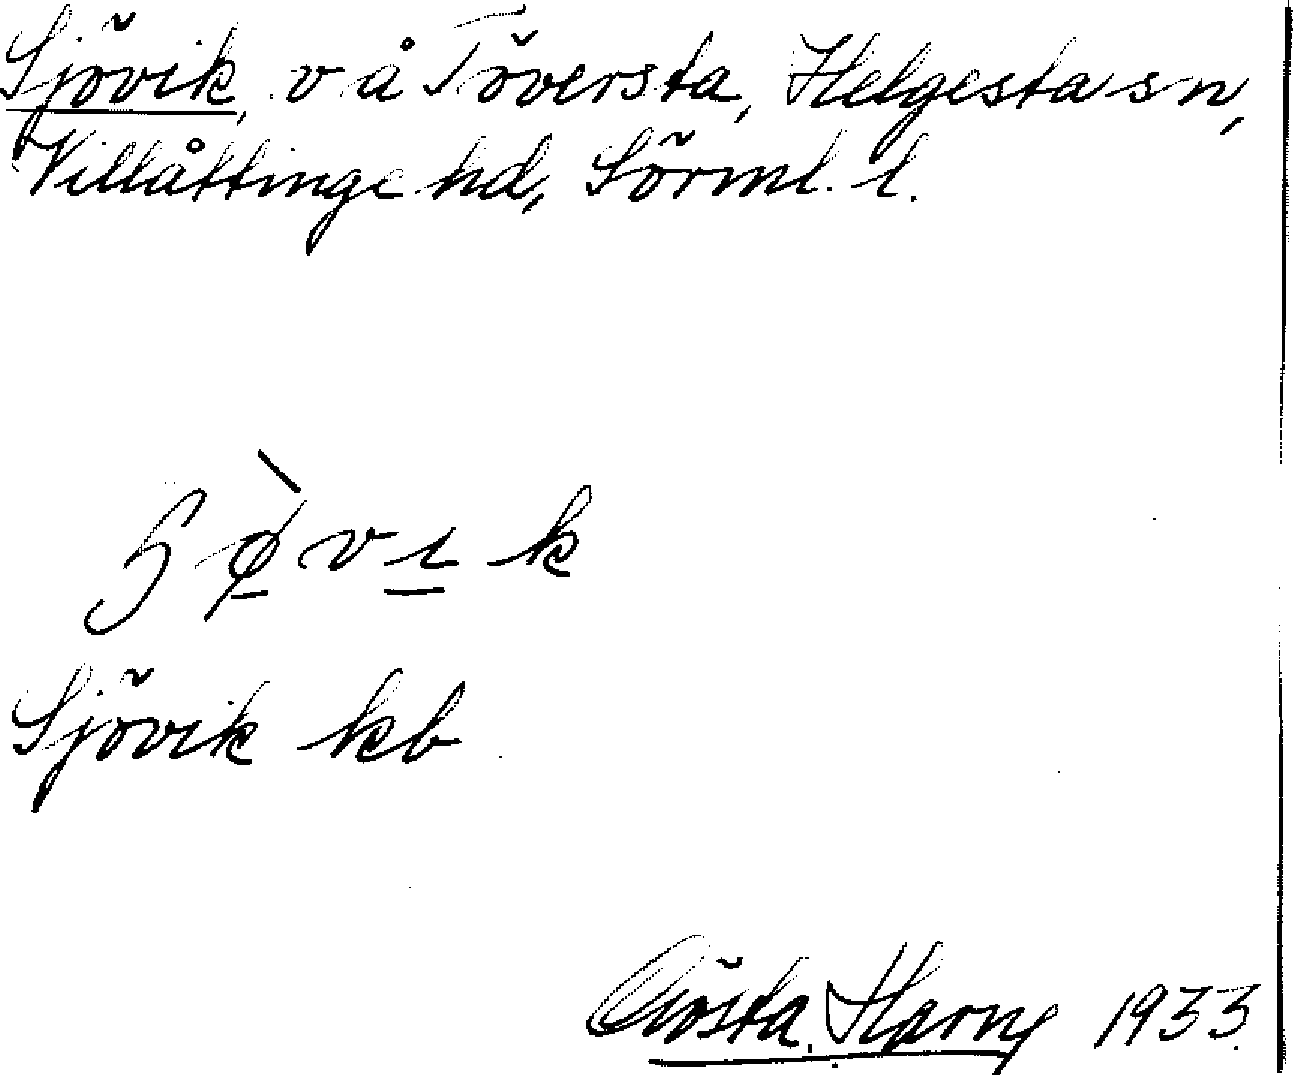 Sjövik, v å Töversta, Helgesta sn,
Villåttinge hd, Sörml. l.
Sjövik kb
Gösta Harne 1933.